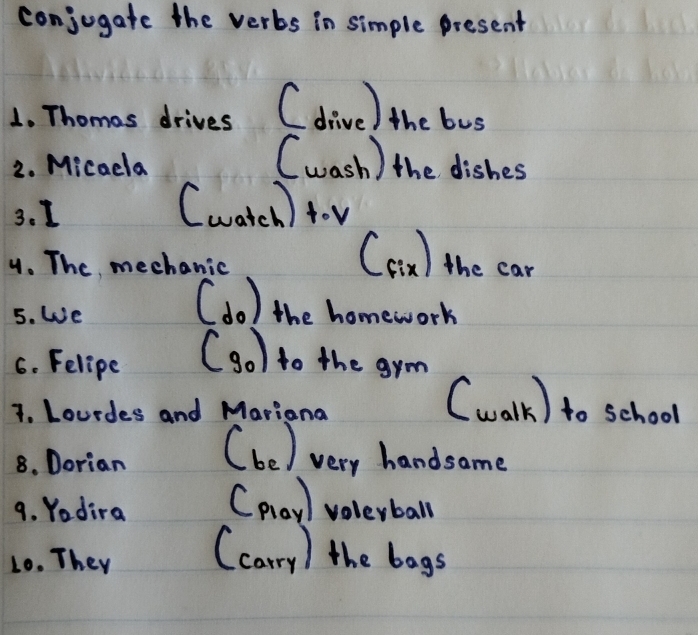 conjugate the verbs in simple present
1. Thomas drives (drive) the bus
2. Micaela (wash) the dishes
3. I (watch) t.v
4. The mechanic (fix) the car
5. We (do) the homework
6. Felipe (go) to the gym
7. Lourdes and Mariana (walk) to school
8. Dorian (be) very handsome
9. Yadira (play) voleyball
10. They (carry) the bags